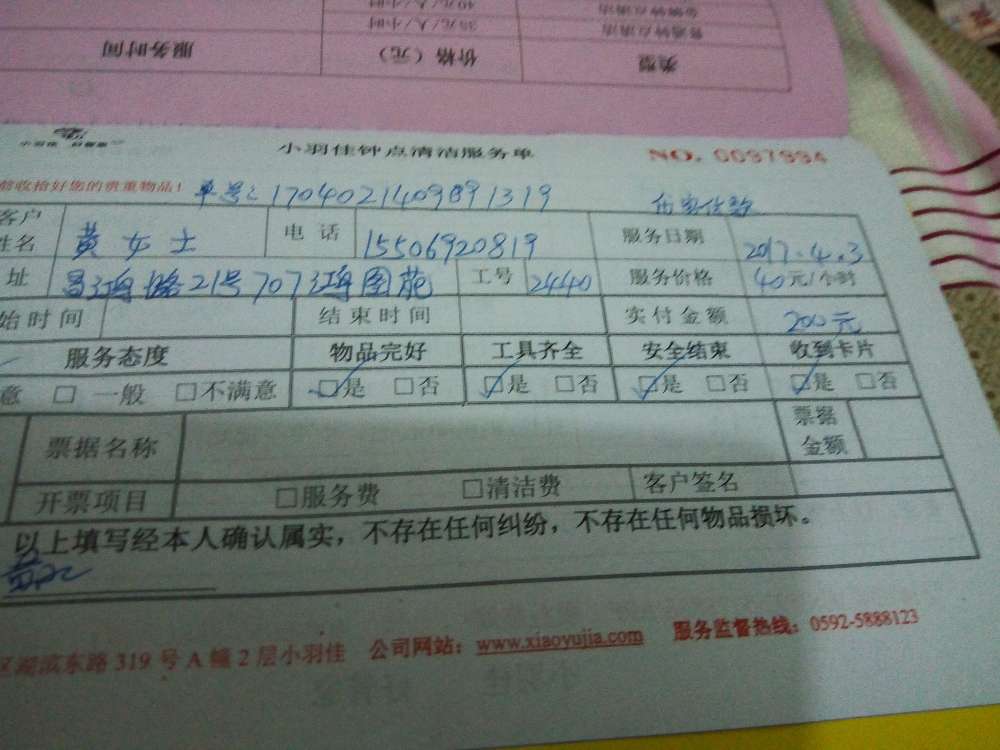 40元/人/小时
金牌钟点清洁
35元/人/小时
普通钟点清洁
服务时间
价格（元）
类型
小羽佳 好管家
小羽佳钟点清洁服务单
NO. 0097994
前收拾好您的贵重物品！
单号：1704021409891319
客户姓名 黄女士 电话 15506920819 服务日期 2017.4.3
址 21号707 工号 24440 服务价格 40元/小时
始时间 结束时间 实付金额 200元
服务态度 物品完好 工具齐全 安全结束 收到卡片
意 □ 一般 □不满意 □是 □否 □是 □否 □是 □否 □是 □否
票据名称 票据金额
开票项目 □服务费 □清洁费 客户签名
以上填写经本人确认属实，不存在任何纠纷，不存在任何物品损坏。
区湖滨东路 319 号 A 幢 2 层小羽佳 公司网站：www.xiaoyujia.com 服务监督热线：0592-5888123